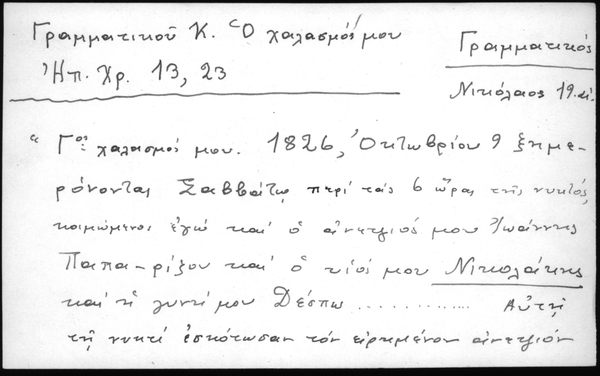 Γραμματικοῦ Κ. Ὁ χαλασμός μου
Ἠπ. Χρ. 13, 23
Γραμματικός
Νικόλαος 19 αἰ.
“ Γος χαλασμός μου. 1826, Ὀκτωβρίου 9 ξημε-
ρόνοντας Σαββάτῳ περί τάς 6 ὥρας τῆς νυκτός,
κοιμώμενοι ἐγώ καί ὁ ἀνεψιός μου Ἰωάννης
Παπα-ρίζου καί ὁ υἱός μου Νικολάκης
καί ἡ γυνή μου Δέσπω ............. Αὐτῇ
τῇ νυκτί ἐσκότωσαν τόν εἰρημένον ἀνεψιόν